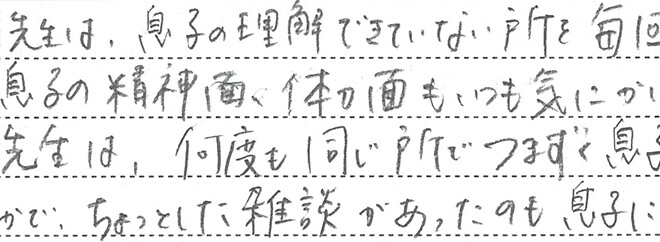 先生は、息子の理解できていない所を毎回
息子の精神面、体力面もいつも気にか
先生は、何度も同じ所でつまずく息子
かで、ちょっとした雑談があったのも息子に